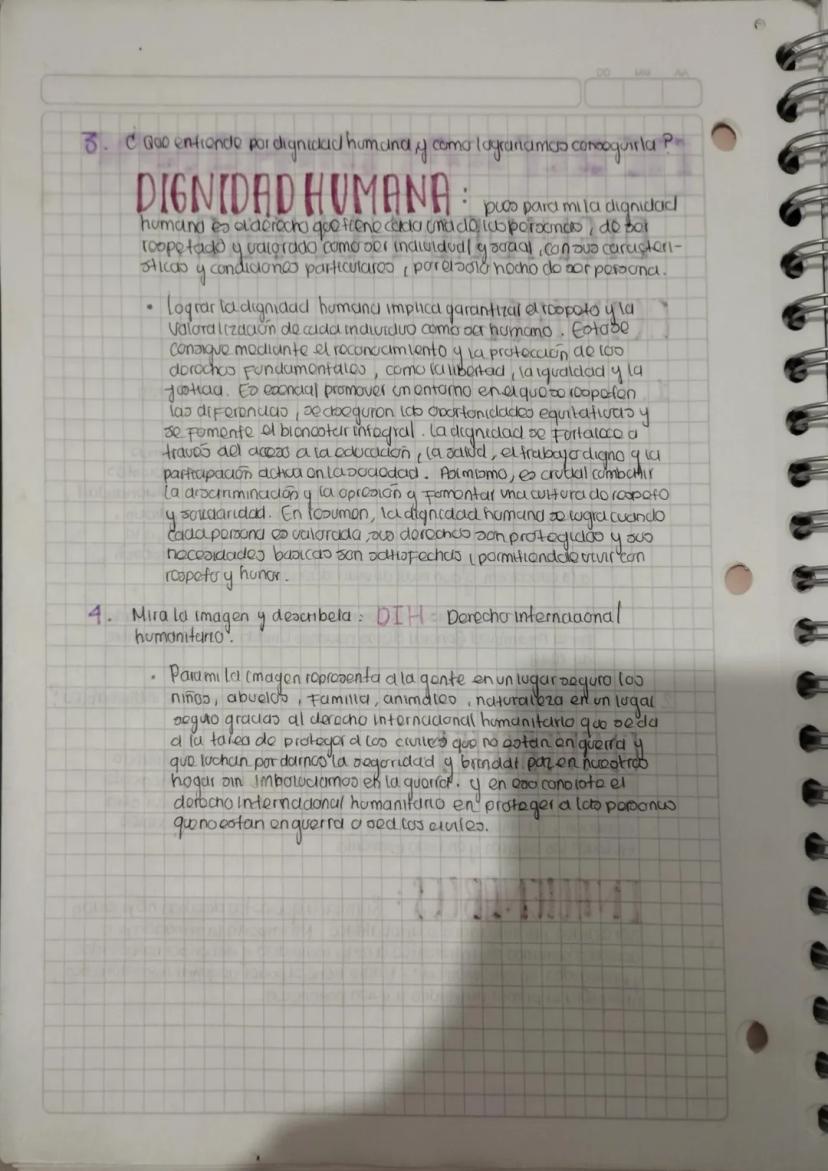 DD MM AA
3. ¿ Que entiende por dignidad humana y como lograriamos conseguirla ?
DIGNIDAD HUMANA : pues para mi la dignidad
humana es el derecho que tiene cada una de las personas , de ser
respetado y valorado como ser individual y social , con sus caracterí-
sticas y condiciones particulares , por el solo hecho de ser persona.
• Lograr la dignidad humana implica garantizar el respeto y la
valoralización de cada individuo como ser humano . Esto se
consigue mediante el reconocimiento y la protección de los
derechos fundamentales , como la libertad , la igualdad y la
justicia. Es esencial promover un entorno en el que se respeten
las diferencias , se aseguren las oportunidades equitativas y
se fomente el bienestar integral . La dignidad se fortalece a
través del acceso a la educación , la salud , el trabajo digno y la
participación activa en la sociedad . Asimismo, es crucial combatir
la discriminación y la opresión y fomentar una cultura de respeto
y solidaridad. En resumen, la dignidad humana se logra cuando
cada persona es valorada , sus derechos son protegidos y sus
necesidades basicas son satisfechas , permitiendole vivir con
respeto y honor.
4. Mira la imagen y describela : DIH : Derecho internacional
humanitario.
• Para mi la imagen representa a la gente en un lugar seguro los
niños, abuelos , familia , animales , naturaleza en un lugar
seguro gracias al derecho internacional humanitario que se da
a la tarea de proteger a los civiles que no estan en guerra y
que luchan por darnos la seguridad y brindar paz en nuestros
hogar sin imbolucrarnos en la guerra. y en eso consiste el
derecho internacional humanitario en proteger a las personas
que no estan en guerra o sea los civiles.